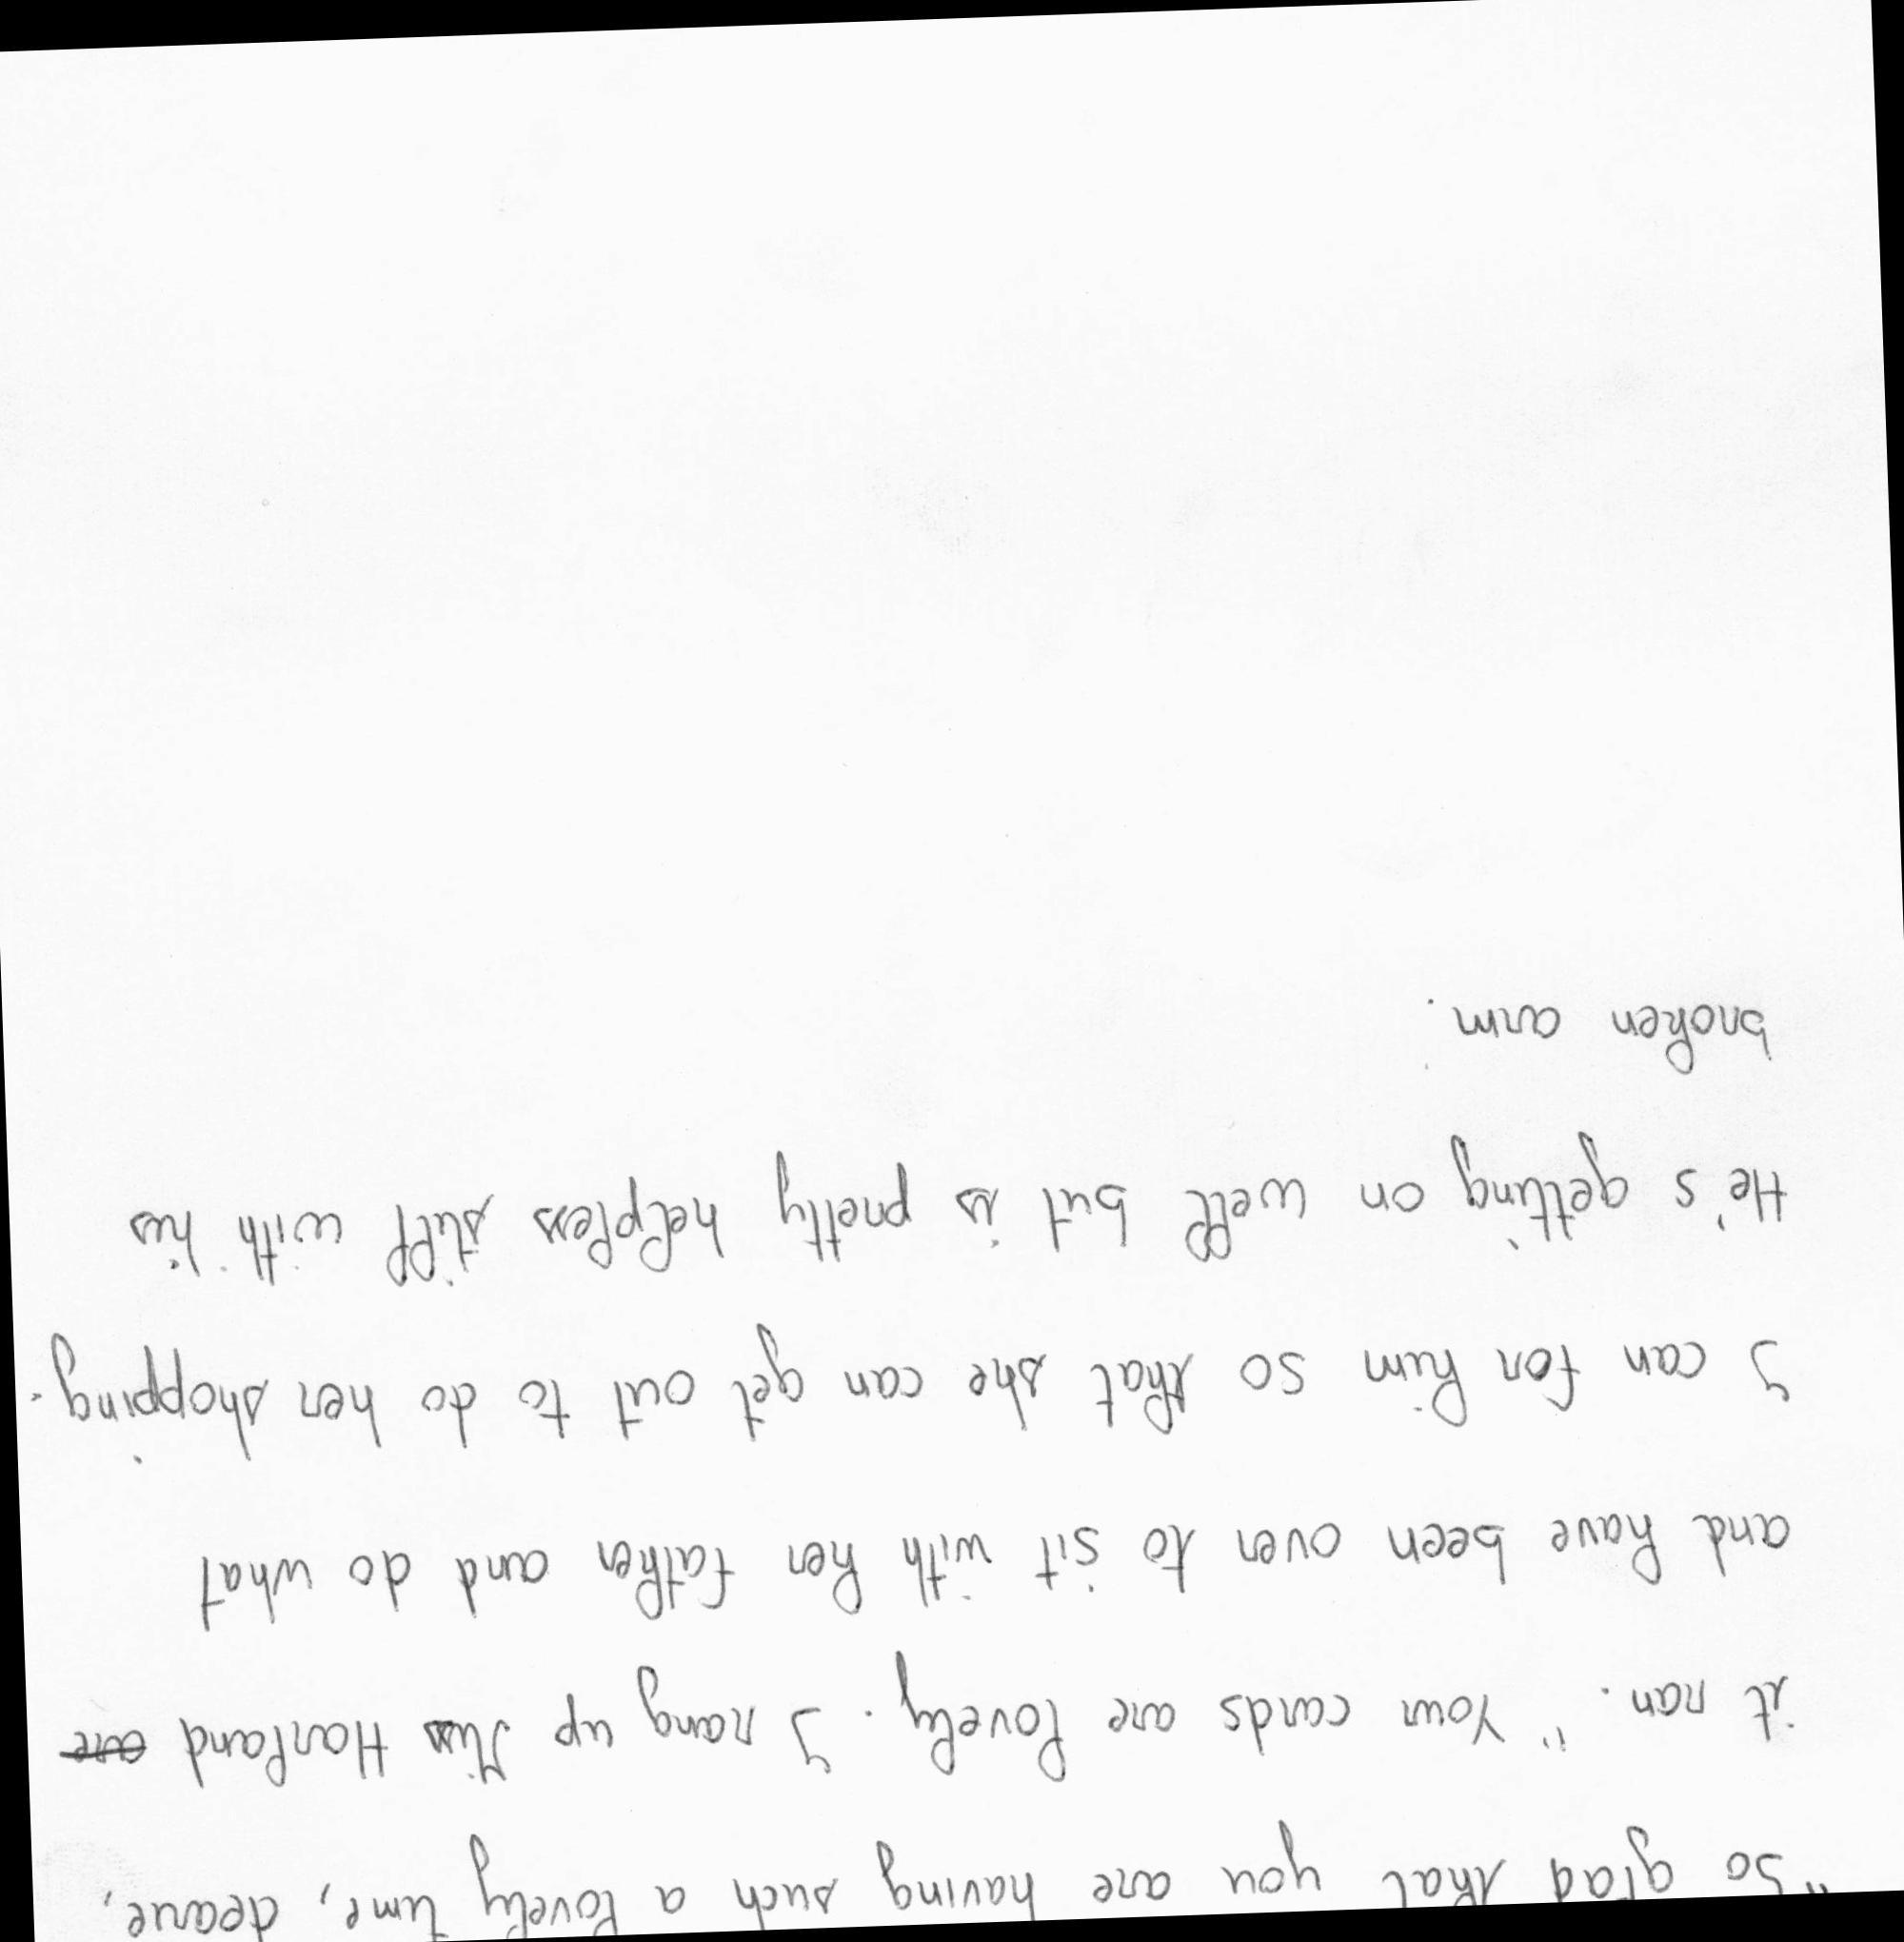 "So glad that you are having such a lovely time, dearie,
it ran. "Your cards are lovely. I rang up Miss Harland
and have been over to sit with her father and do what
I can for him so that she can get out to do her shopping.
He's getting on well but is pretty helpless still with his
broken arm.